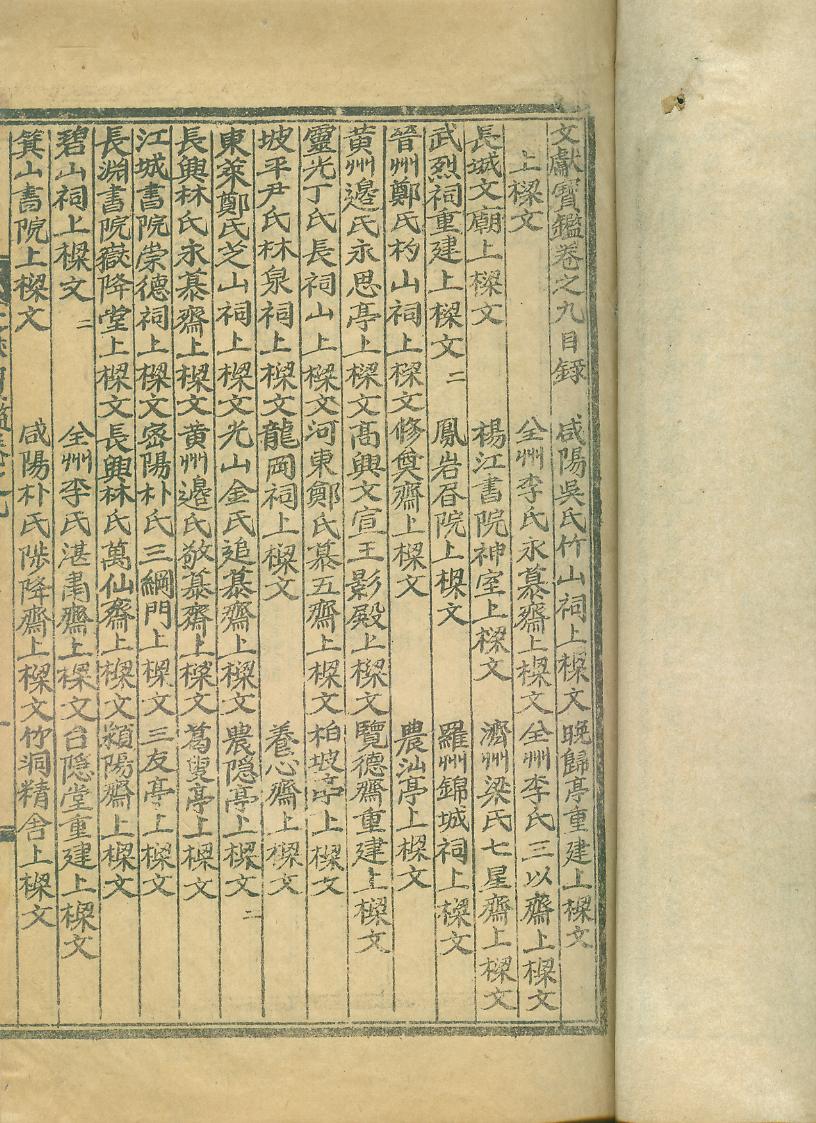 文獻寶鑑卷之九目録 咸陽吳氏竹山祠上樑文 晩歸亭重建上樑文
上樑文 全州李氏永慕齋上樑文 全州李氏三以齋上樑文
長城文廟上樑文 楊江書院神室上樑文 濟州梁氏七星齋上樑文
武烈祠重建上樑文 二 鳳岩書院上樑文 羅州錦城祠上樑文
晉州鄭氏杓山祠上樑文 修奠齋上樑文 農汕亭上樑文
黄州邊氏永思亭上樑文 高興文宣王影殿上樑文 覽德齋重建上樑文
靈光丁氏長祠山上樑文 河東鄭氏慕五齋上樑文 柏坡亭上樑文
坡平尹氏林泉祠上樑文 龍岡祠上樑文 養心齋上樑文
東萊鄭氏芝山祠上樑文 光山金氏追慕齋上樑文 農隐亭上樑文 二
長興林氏永慕齋上樑文 黄州邊氏敬慕齋上樑文 萬叟亭上樑文
江城書院崇德祠上樑文 密陽朴氏三綱門上樑文 三友亭上樑文
長淵書院嶽降堂上樑文 長興林氏萬仙齋上樑文 潁陽齋上樑文
碧山祠上樑文 二 全州李氏湛肅齋上樑文 台隐堂重建上樑文
箕山書院上樑文 咸陽朴氏陟降齋上樑文 竹洞精舎上樑文